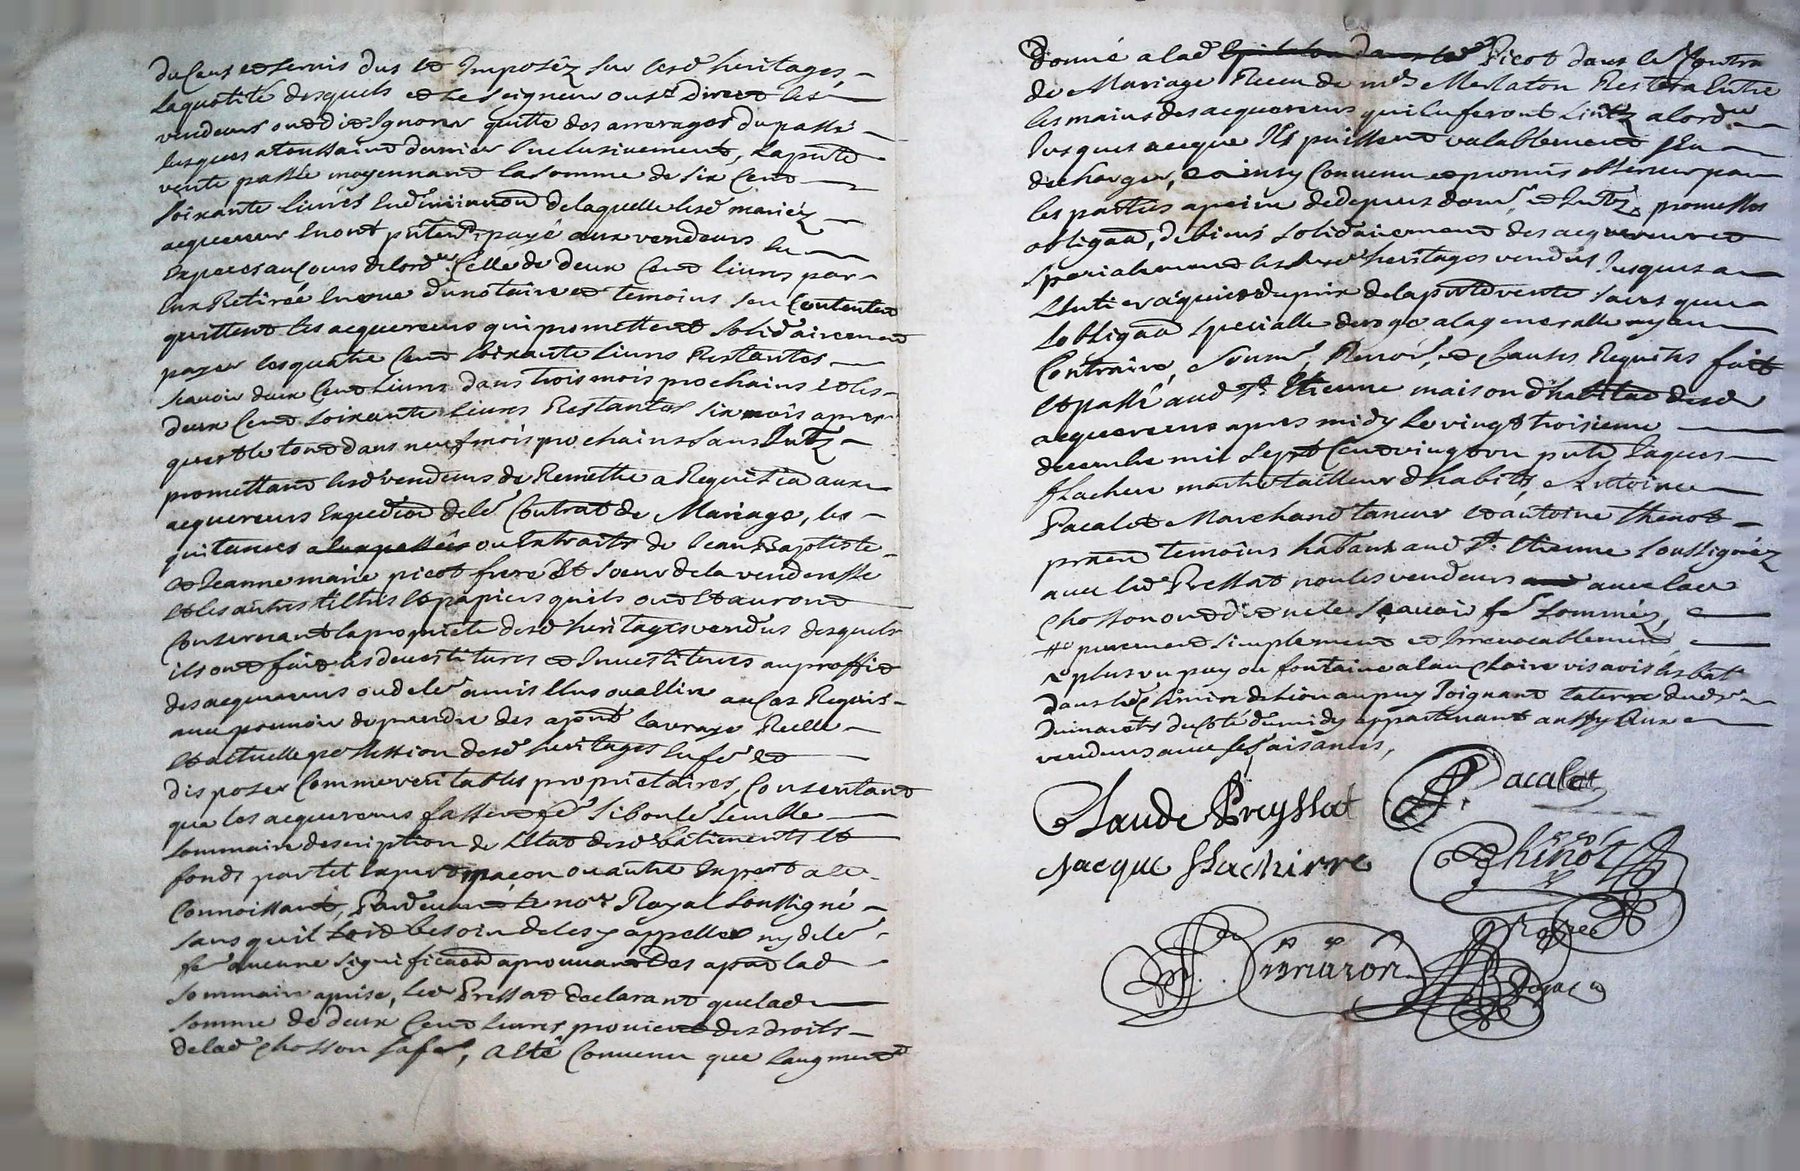 du Cens et servis dus et Imposéz sur lesd heritages,
la quotité desquels et le Seigneur ou Sr Direct les
vendeurs ont dit Ignorer quitte des arrerages du passé
Jusques a toussaint dernier Inclusivement, la pnte
vente passée moyennant la somme de six Cent
soixante livres de laquelle lesd mariéz
acquereurs en ont pntement payé aux vendeurs en
Especes au Cours de lord. Celle de deux Cent livres par
Eux Retirée En vue du notaire et temoins sen Contentent
quittent les acquereurs qui promettent solidairement
payer les quatre Cent soixante livres Restantes
scavoir deux Cent livres dans trois mois prochains et les
deux Cent soixante livres Restantes six mois apres
qui est le tout dans neuf mois prochains sans Intz
promettant lesd vendeurs de Remettre a Requisition aux
acquereurs Expedion de le Contrat de Mariage, les
quitances ou Extraits de Jean Baptiste
et Jeanne marie picot frere Et soeur de la venderesse
et les autres tiltres et papiers quils ont et auront
Concernant la propriete desd heritages vendus desquels
ils ont fait les devestitures et Investitures au proffit
des acquereurs ou de le amis Elus ou a Elire au Cas Requis
avec pouvoir de prendre des apnt la vraye Reelle
et actuelle possession desd heritages En fe et
disposer Comme veritables proprietaires, Consentant
que les acquereurs fassent fe si bon le semble
sommaire description de lEtat desd bâtiments et
fonds par tel Expert maçon ou autre Expert a ce
Connoissant, Pardevant le nore Royal soussigné
sans quil soit besoin de les y appeller ny de le
fe aucune significaon aprouvant des apnt lad
sommaire aprise, led Pressat declarant que lad
somme de deux Cent livres provient des droits
de lad Chosson sa fe, a Eté Convenu que laugment
Donné a lad Picot dans le Contra
de Mariage Recu de me Merlaton Restera Entre
les mains des acquereurs qui En feront lintz a lordre
Jusques a ce que Ils puissent valablement sEn
decharger, Et ainsy Convenu et promis observer par
les parties a peine de depens dom. et Intz promesses
obligaon, de biens solidairement des acquereurs et
specialement les susd heritages vendus Jusques a
Lentier aquit du prix de la pnte vente sans que
Lobligaon specialle deroge a la generalle ny au
Contraire, soum. Renon. et Clauses Requises fait
Et passé aud St Etienne maison dhabitaon desd
acquereurs apres midy le vingt troisieme
decembre mil sept Cent vingt un pnts Jaques
flachere maitre tailleur dhabits, Antoine
Pacalet Marchand taneur et antoine Thenot
praen temoins habtans aud St Etienne soussignéz
avec led Pressat non les vendeurs avec lad
Chosson ont dit ne le scavoir fe sommés,
# purement simplement et Irrevocablement
et plus un puy ou fontaine a lau Claire vis avis les bat
dans le Chemin de Lion au puy Joignant la terre dud Sr
Dumarets du Coté de midy appartenant aussy aux
vendeurs avec ses aisances,
Claude Preyssat A. Pacalet
Jacque flachirre Thenot